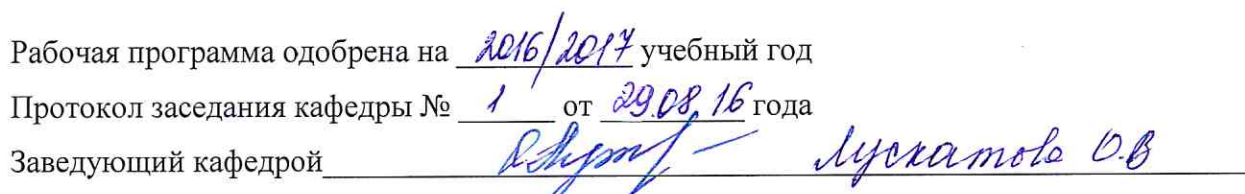 Рабочая программа одобрена на 2016/2017 учебный год
Протокол заседания кафедры № 1 от 29.08.16 года
Заведующий кафедрой Лускатова О.В